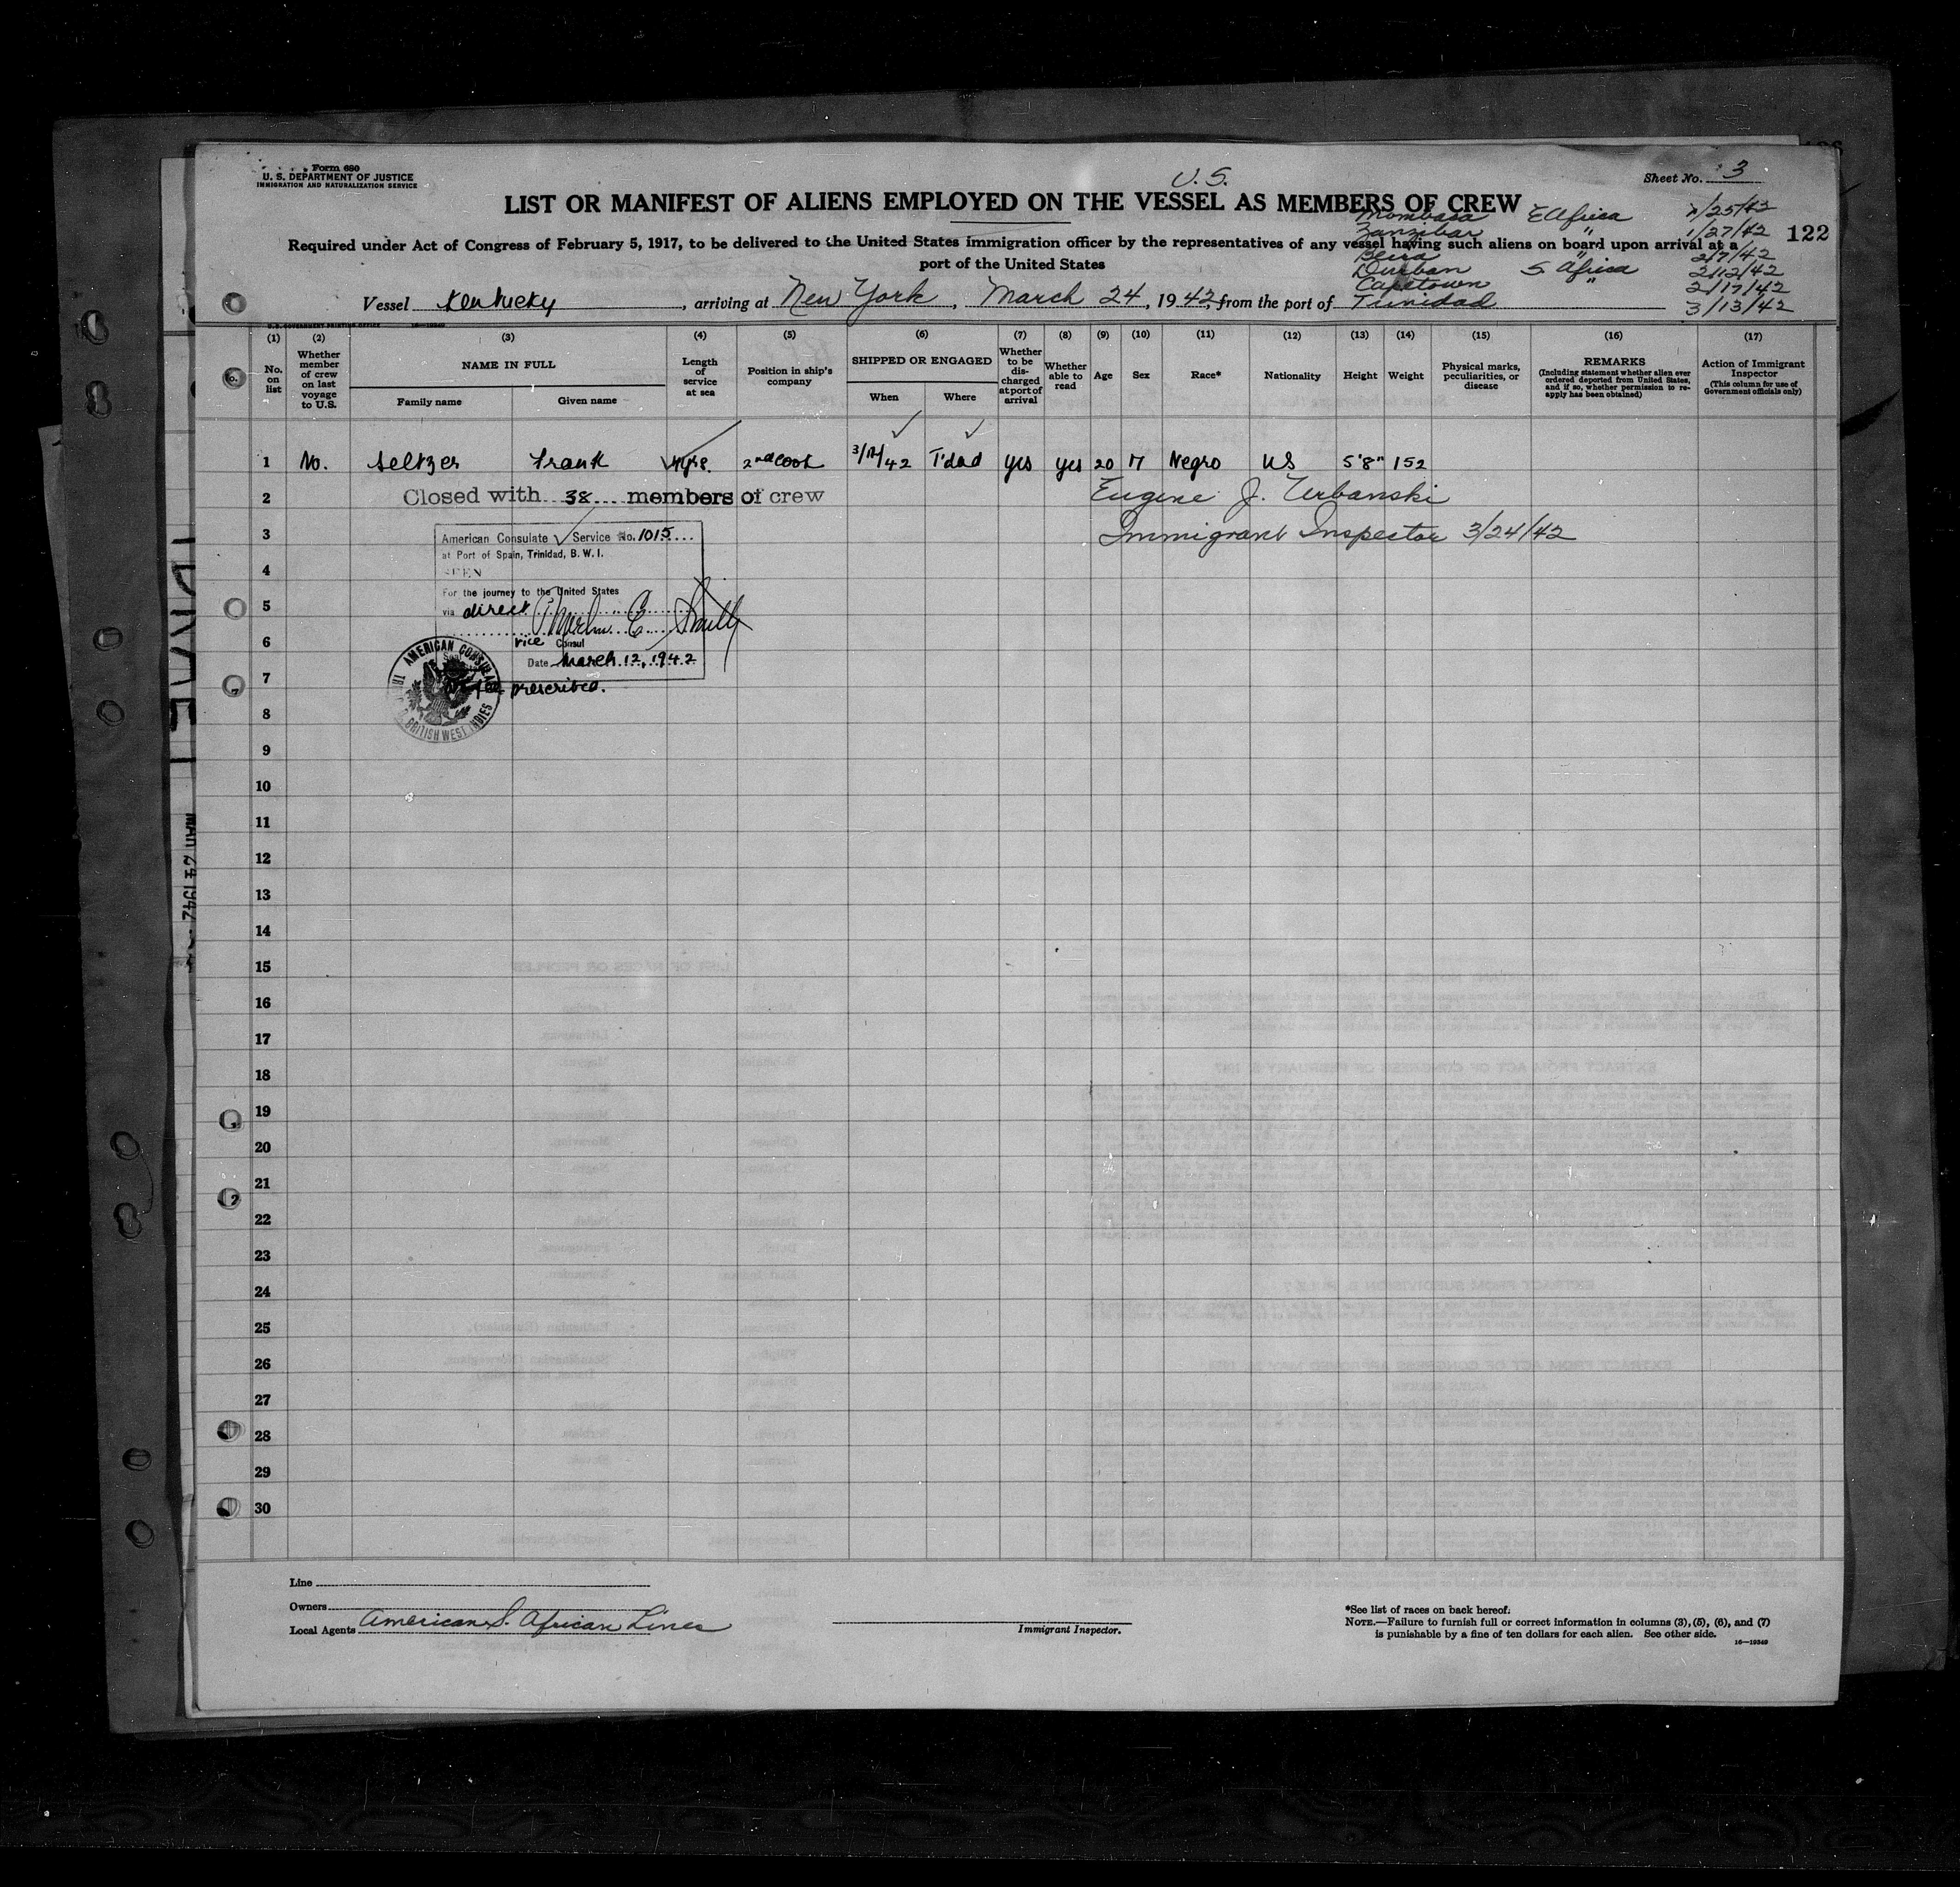 Form 680
U. S. DEPARTMENT OF JUSTICE
IMMIGRATION AND NATURALIZATION SERVICE
U. S.
Sheet No. 3
LIST OR MANIFEST OF ALIENS EMPLOYED ON THE VESSEL AS MEMBERS OF CREW
Mombasa E Africa 1/25/42
Zanzibar " 1/27/42
122
Required under Act of Congress of February 5, 1917, to be delivered to the United States immigration officer by the representatives of any vessel having such aliens on board upon arrival at a
port of the United States
Beira " 2/7/42
Durban S. Africa 2/12/42
Capetown " 2/17/42
Vessel Kentucky, arriving at New York, March 24, 1942, from the port of Trinidad 3/13/42
U.S. GOVERNMENT PRINTING OFFICE 16—19349
(1) (2) (3) (4) (5) (6) (7) (8) (9) (10) (11) (12) (13) (14) (15) (16) (17)
No. on list
Whether member of crew on last voyage to U.S.
NAME IN FULL
Family name
Given name
Length of service at sea
Position in ship's company
SHIPPED OR ENGAGED
When
Where
Whether to be discharged at port of arrival
Whether able to read
Age
Sex
Race*
Nationality
Height
Weight
Physical marks, peculiarities, or disease
REMARKS
(Including statement whether alien ever ordered deported from United States, and if so, whether permission to reapply has been obtained)
Action of Immigrant Inspector
(This column for use of Government officials only)
1 No. Seltzer Frank 4yrs. 2nd Cook 3/12/42 T'dad yes yes 20 M Negro US 5'8" 152
2 Closed with 38 members of crew Eugene J. Urbanski
3 Immigrant Inspector 3/24/42
American Consulate Service No. 1015
at Port of Spain, Trinidad, B. W. I.
4
SEEN
For the journey to the United States
5
via direct
6
Vice Consul
Date March 12, 1942
7
No fee prescribed.
AMERICAN CONSULATE
BRITISH WEST INDIES
8
9
10
11
12
13
14
15
16
17
18
19
20
21
22
23
24
25
26
27
28
29
30
Line
Owners
Local Agents American S. African Lines
Immigrant Inspector.
*See list of races on back hereof.
NOTE.—Failure to furnish full or correct information in columns (3), (5), (6), and (7)
is punishable by a fine of ten dollars for each alien. See other side.
16—19349
MAR 24 1942